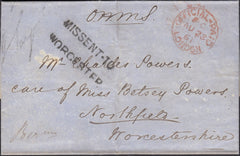 OHMS.
MISSENT-TO
WORCESTER
OFFICIAL PAID
28
61
LONDON
Mr Charles Powers
care of Miss Betsey Powers
Northfield
Worcestershire